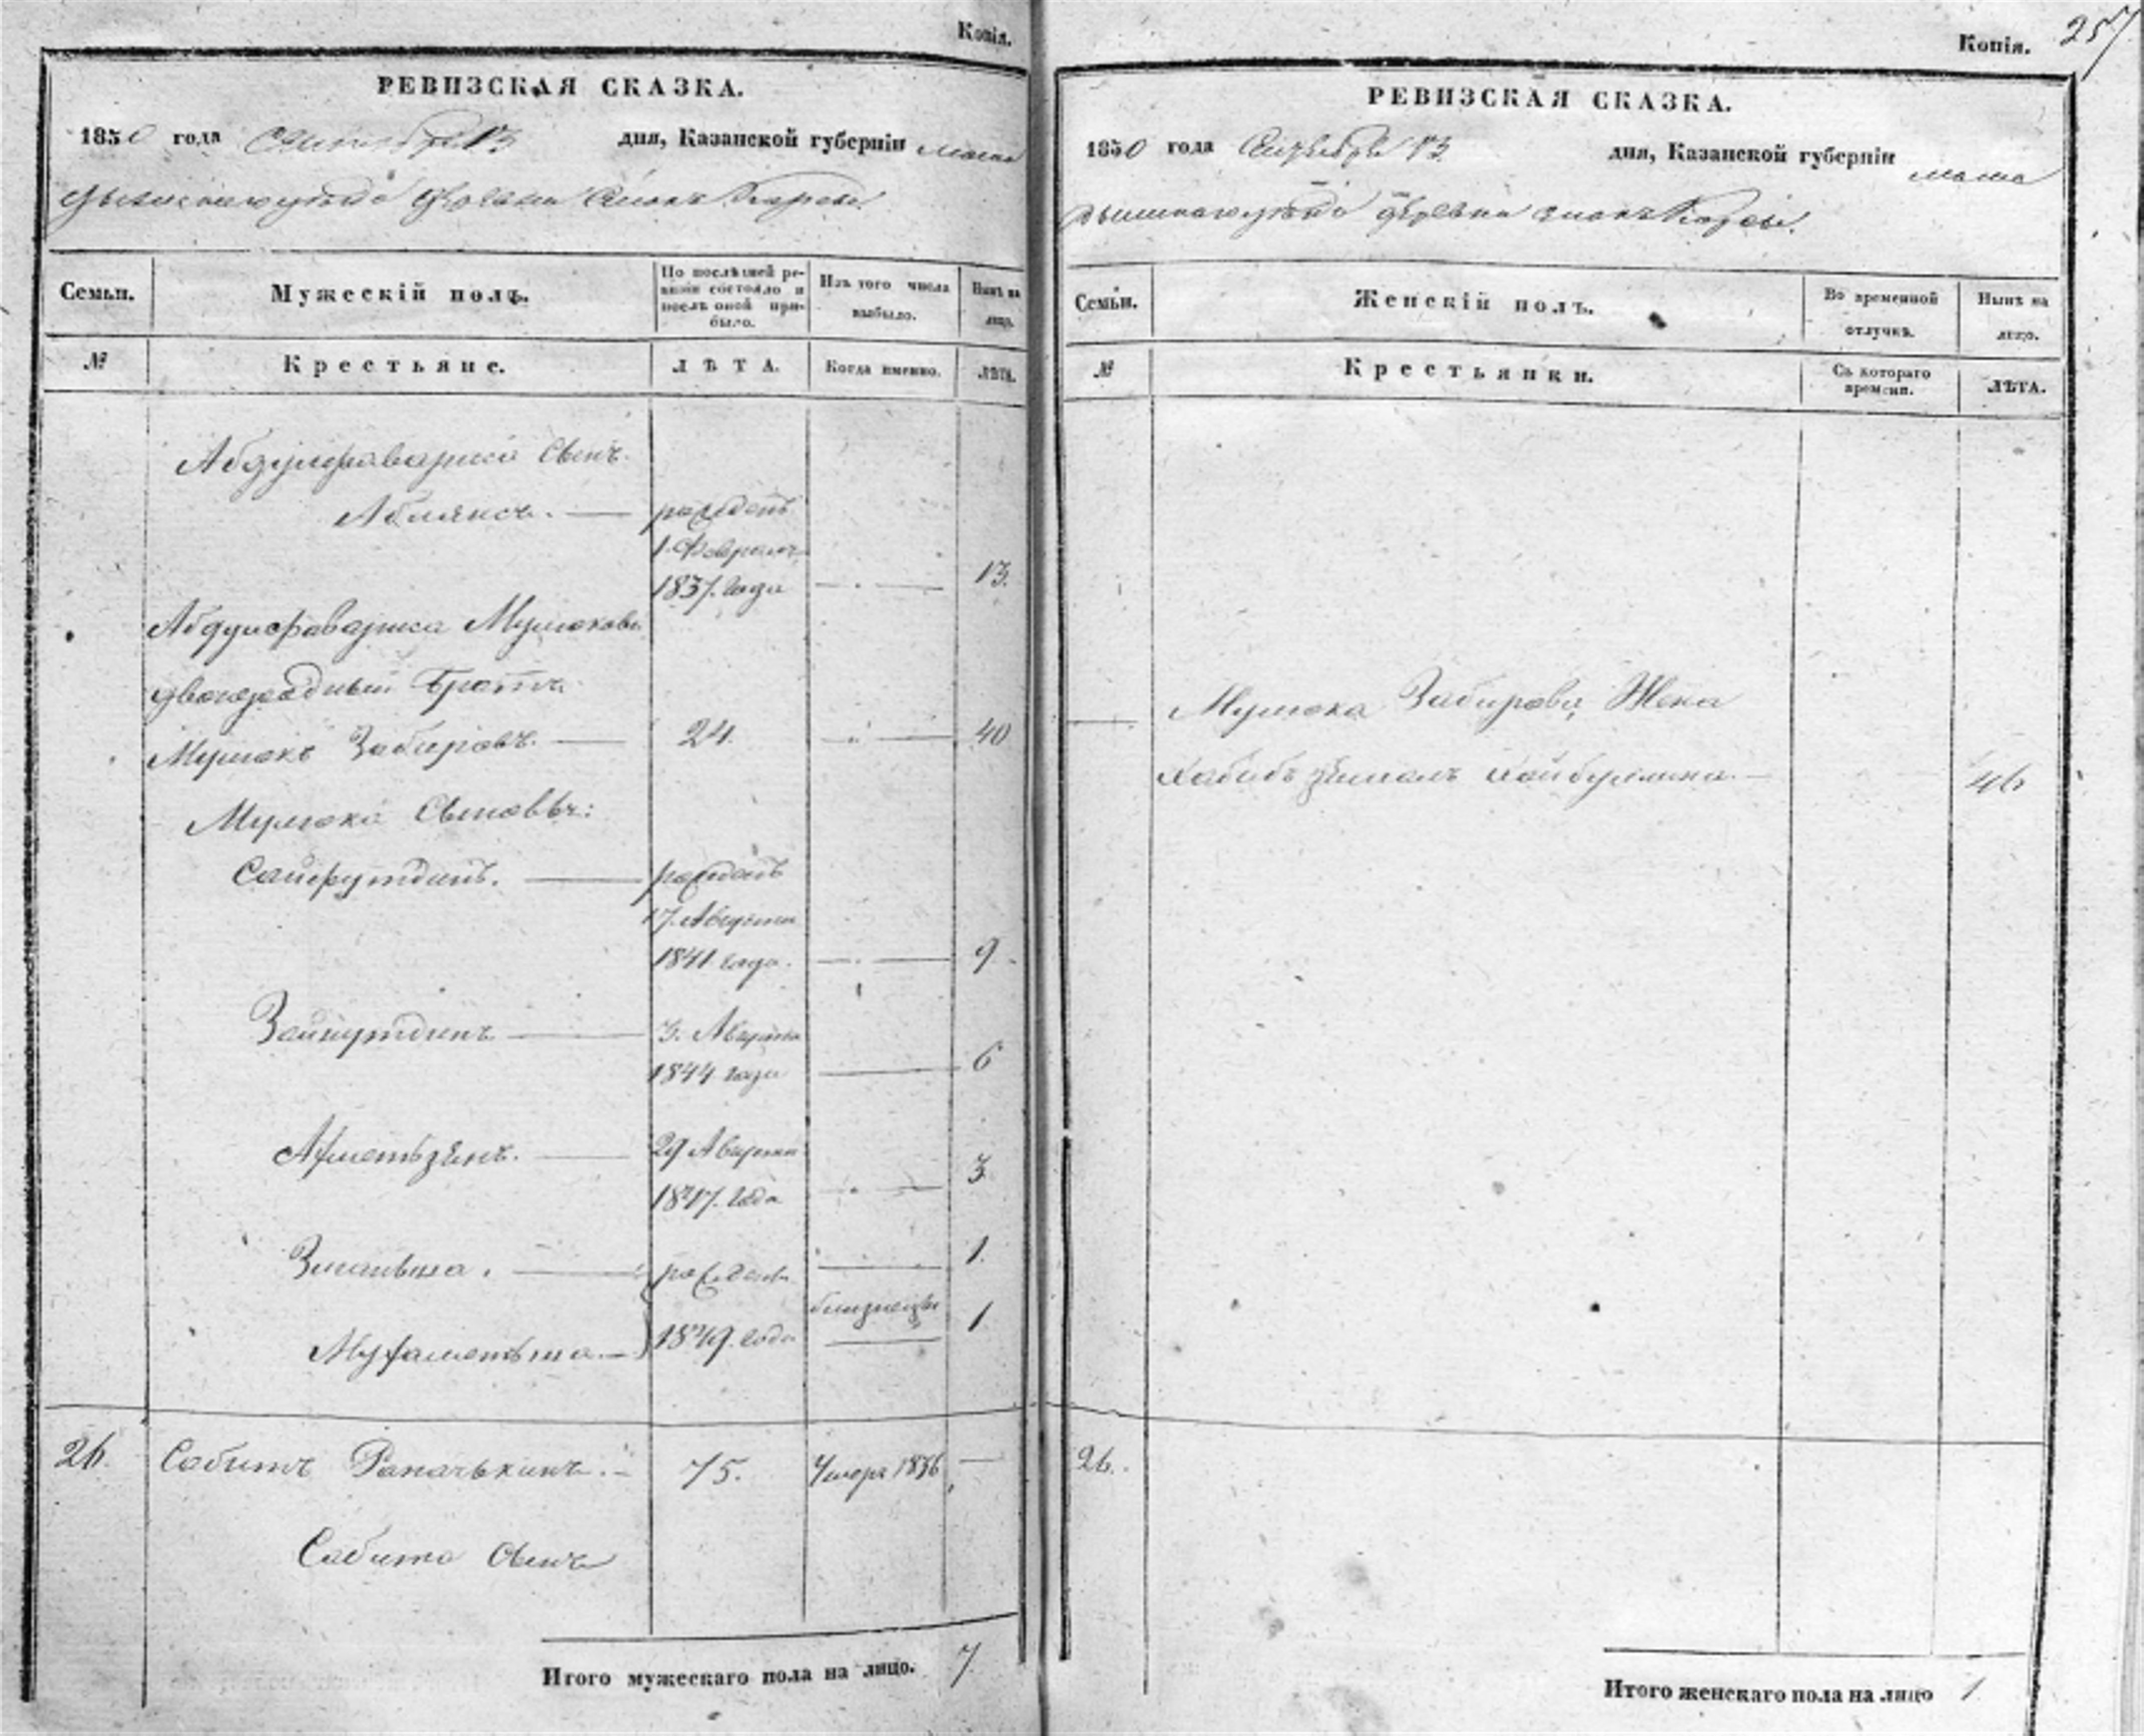 Копія.
РЕВИЗСКАЯ СКАЗКА.
1850 года Сентября 13 дня, Казанской губерніи мама
дышскаго уѣзда деревни
Семьи. Мужескій полъ. По послѣдней ре- Изъ того числа Нынѣ на
визіи состояло и выбыло. лицо.
послѣ оной при-
было.
№ Крестьяне. ЛѢТА. Когда именно. ЛѢТА.
сынъ
рожденъ
1 Февраля
1837. года 13.
Мулюкова
двоюродный братъ
Мулюкъ Забировъ. 24. 40
Мулюка сыновья:
Сайфутдинъ. рожденъ
17. Августа
1841 года. 9
Зайнутдинъ 3. Августа
1844 года 6
Ахметьзянъ. 29 Августа
1847. года 3
рожден 1.
близнецы
Мухаметьша 1849. года 1
26. Сабитъ 75. Умеръ 1836
Сабита сынъ
Итого мужескаго пола на лицо. 7
257
Копія.
РЕВИЗСКАЯ СКАЗКА.
1850 года Сентября 13 дня, Казанской губерніи мама
дышскаго уѣзда деревни
Семьи. Женскій полъ. Во временной Нынѣ на
отлучкѣ. лицо.
№ Крестьянки. Съ котораго ЛѢТА.
времени.
Мулюка Забирова Жена
46
26.
Итого женскаго пола на лицо 1